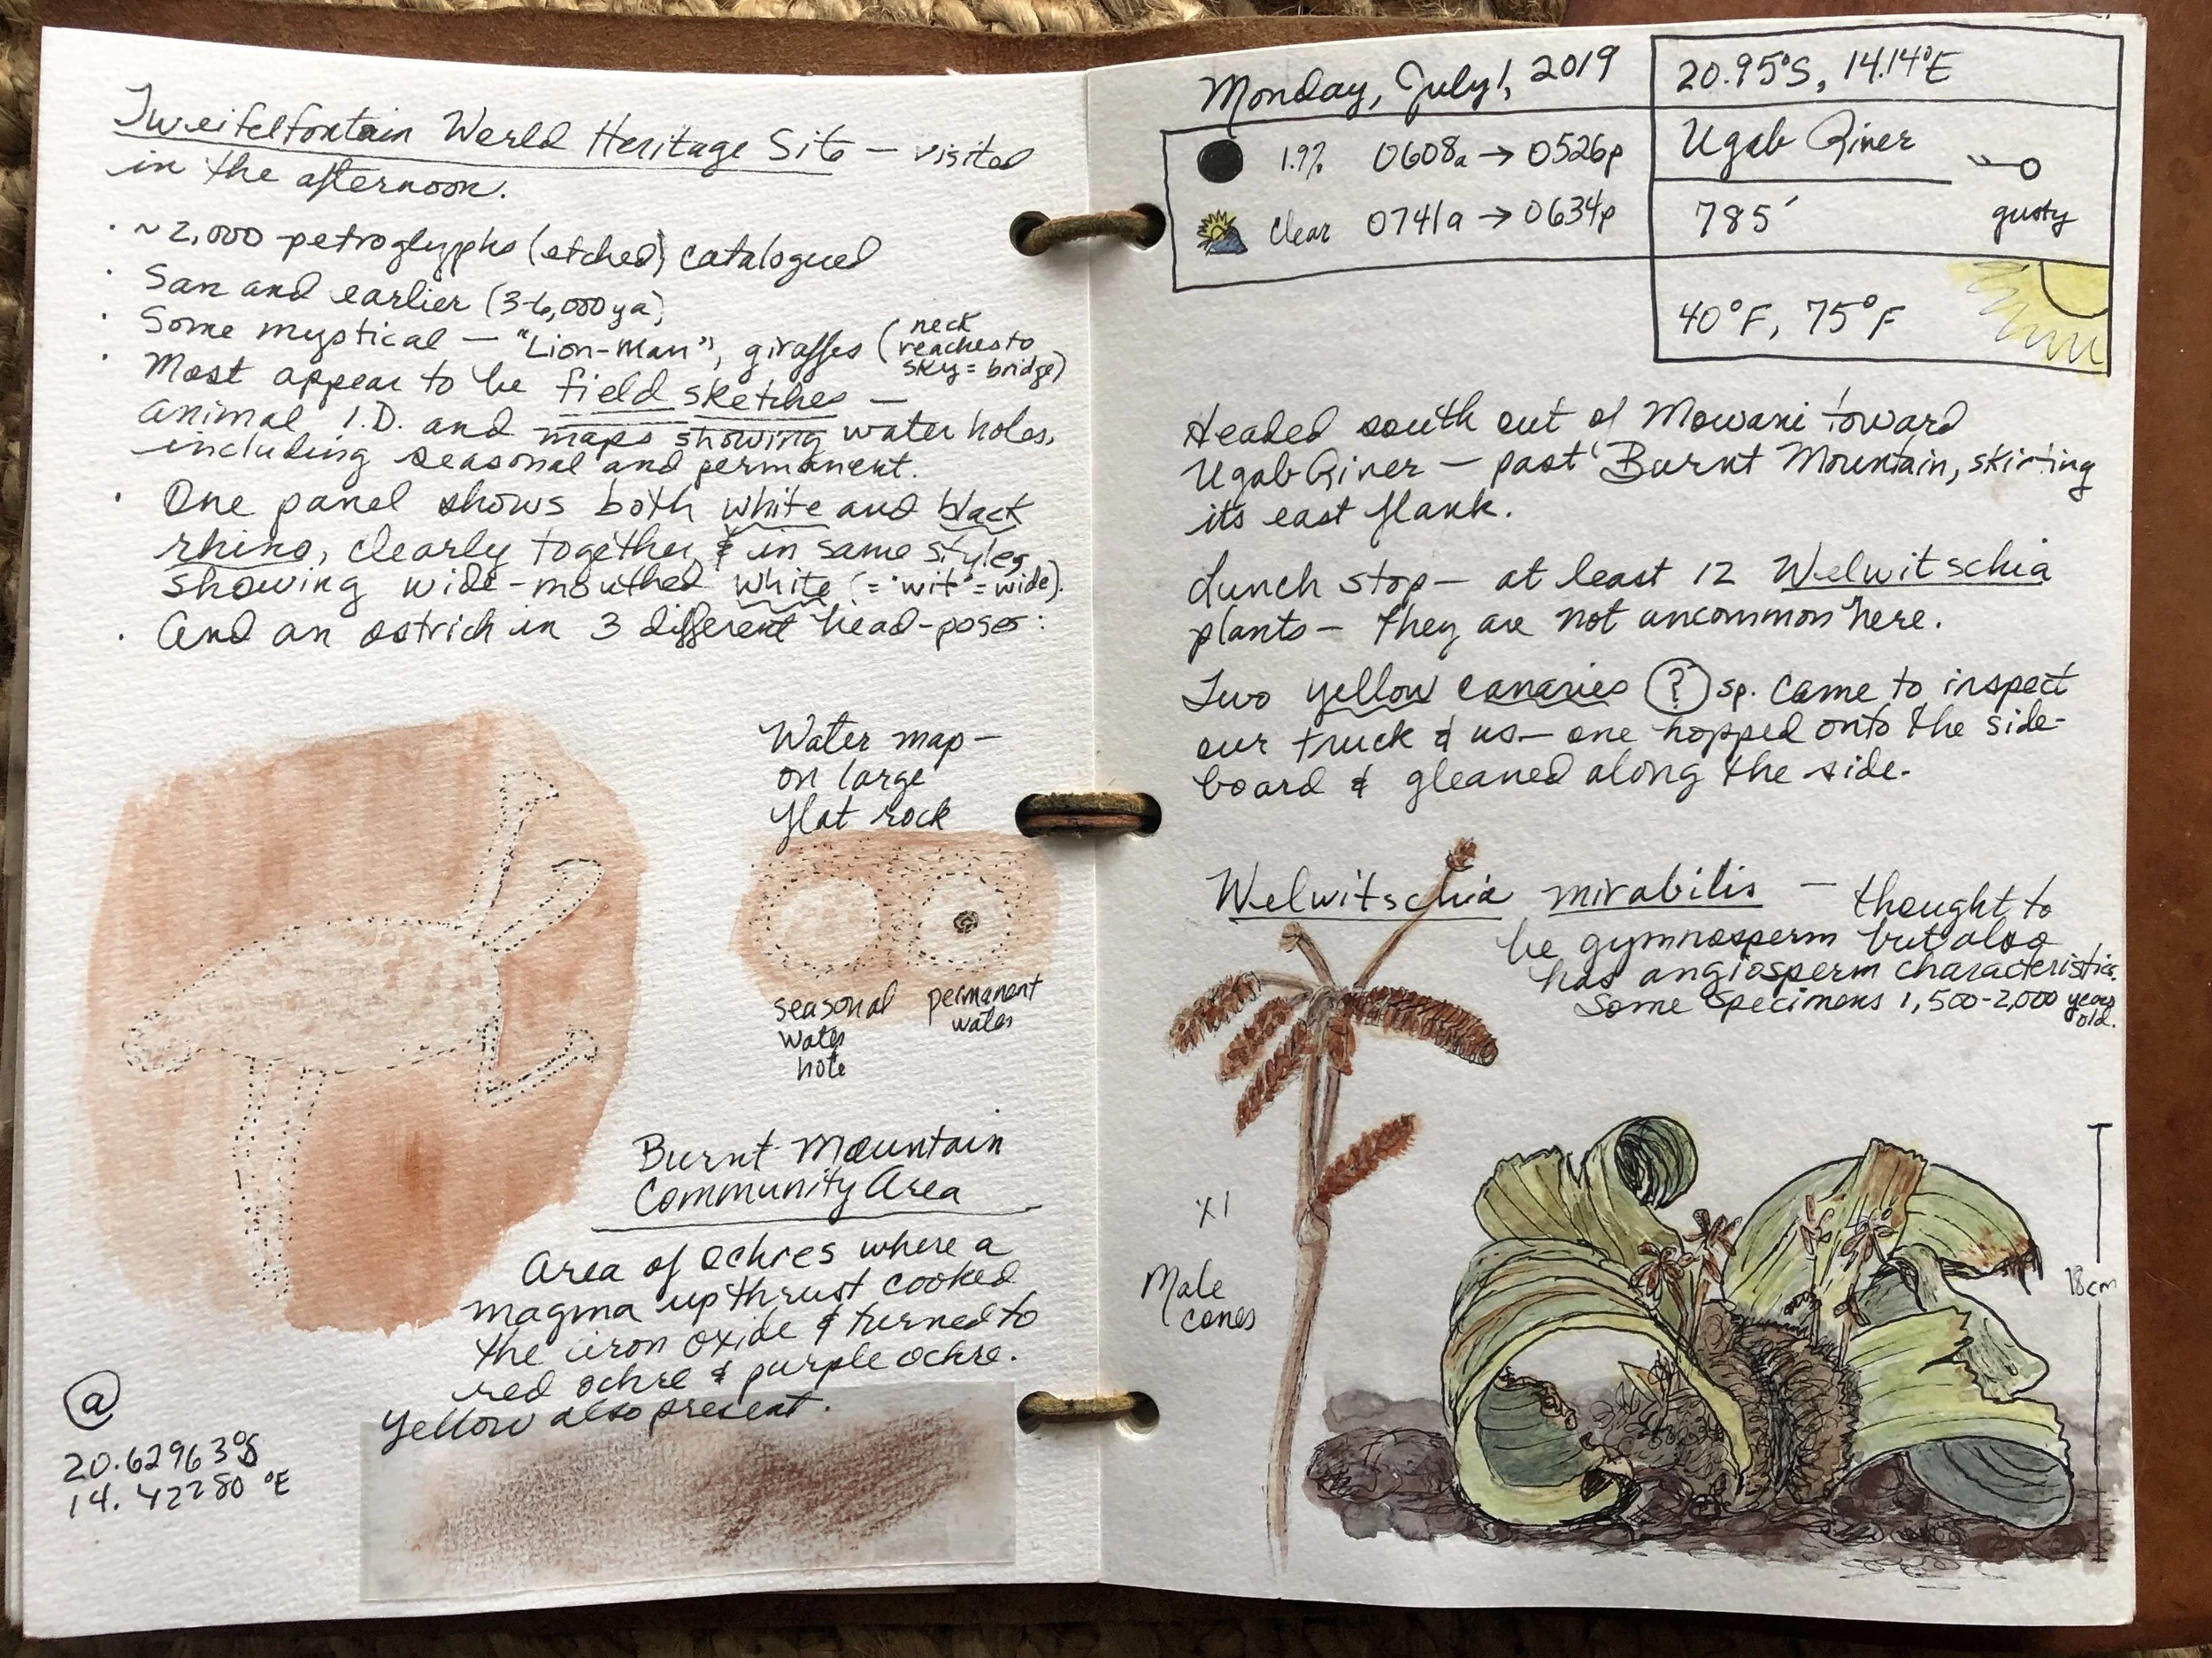 Tweifelfontain World Heritage Site — visited
in the afternoon.
· ~2,000 petroglyphs (etched) catalogued
· San and earlier (3-6,000 ya)
· Some mystical — "Lion-Man", giraffes (neck
reaches to
sky = bridge)
· Most appear to be field sketches —
animal I.D. and maps showing water holes,
including seasonal and permanent.
· One panel shows both white and black
rhino, clearly together & in same style,
showing wide-mouthed white (= "wit" = wide).
· And an ostrich in 3 different head-poses:
Water map—
on large
flat rock
seasonal
water
hole
permanent
water
Burnt Mountain
Community Area
Area of ochres where a
magma upthrust cooked
the iron oxide & turned to
red ochre & purple ochre.
Yellow also present.
@
20.62963°S
14.42280°E
Monday, July 1, 2019
1.9% 0608a → 0526p
clear 0741a → 0634p
20.95°S, 14.14°E
Ugab River
785'
gusty
40°F, 75°F
Headed south out of Mowani toward
Ugab River — past Burnt Mountain, skirting
its east flank.
Lunch stop— at least 12 Welwitschia
plants— they are not uncommon here.
Two yellow canaries ? sp. came to inspect
our truck & us— one hopped onto the side-
board & gleaned along the side.
Welwitschia mirabilis — thought to
be gymnosperm but also
has angiosperm characteristics.
Some specimens 1,500-2,000 years
old.
x1
Male
cones
18cm